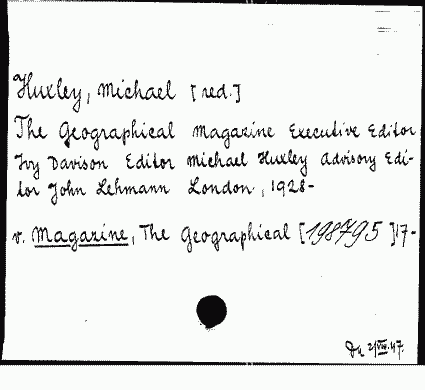 Huxley, Michael [red.]
The Geographical Magazine Executive Editor
Ivy Davison Editor Michael Huxley Advisory Edi-
tor John Lehmann London, 1928-
v. Magazine, The Geographical [198795]17-
2/VIII.47.